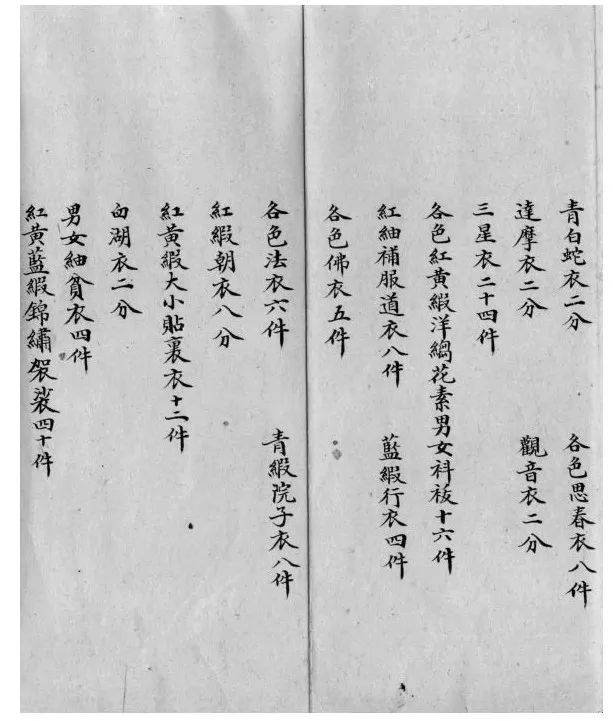 青白蛇衣二分　各色思春衣八件
達摩衣二分　觀音衣二分
三星衣二十四件
各色紅黃緞洋縐花素男女科袯十六件
紅紬補服道衣八件　藍緞行衣四件
各色佛衣五件
各色法衣六件　青緞院子衣八件
紅緞朝衣八分
紅黃緞大小貼裏衣十二件
白湖衣二分
男女紬貧衣四件
紅黃藍緞錦繡袈裟四十件